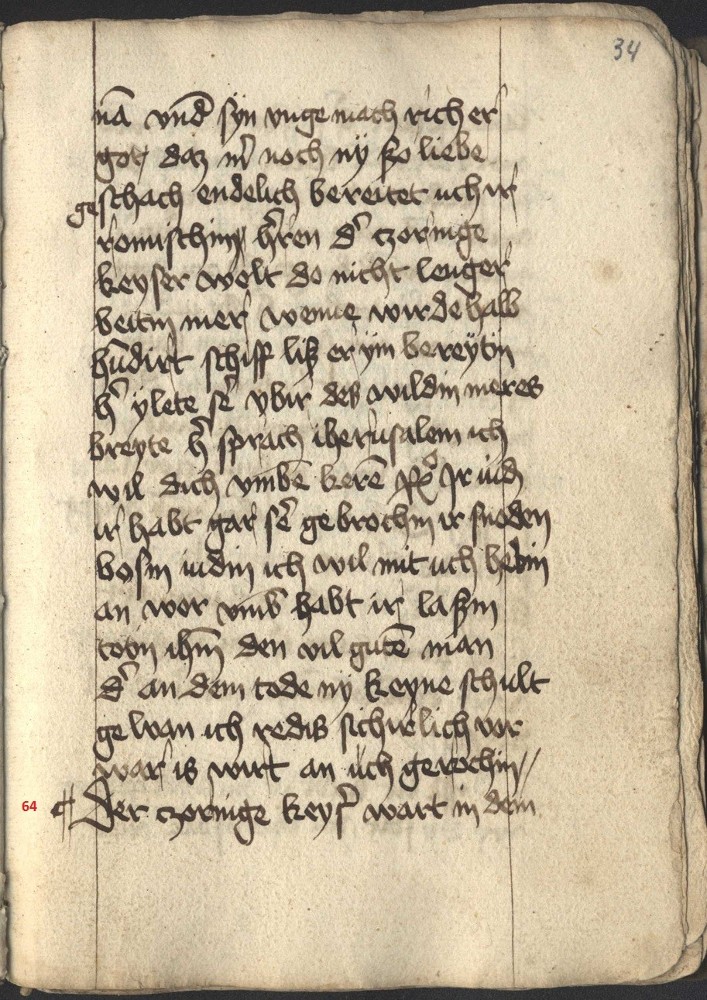 34
nā vnd syn vngemach richer
got daz mˀ noch ny szo liebe
geschach endelich bereitet uch ir
romischiny hˀren dˀ czornige
keyser wolt do nicht lenger
beitin mer wenne wirdehalb
hūdirt schiff lisz er ym bereytin
hˀ ylete sēˀ vbir des wildin meres
breyte hˀ sprach iherusalem ich
wil dich vmbē kerē Ir iudī
ir habt gar sēˀ gebrochin ir snoden
bosin iudin ich wil mit uch hebin
an wor vmb habt ir laszin
totin ihm̄ den vil gutē man
dˀ an dem tode ny keyne schult
gewan ich redis sichirlich vor
war is wirt an uch gerochin //
64
Der czornige keysˀ wart in dem